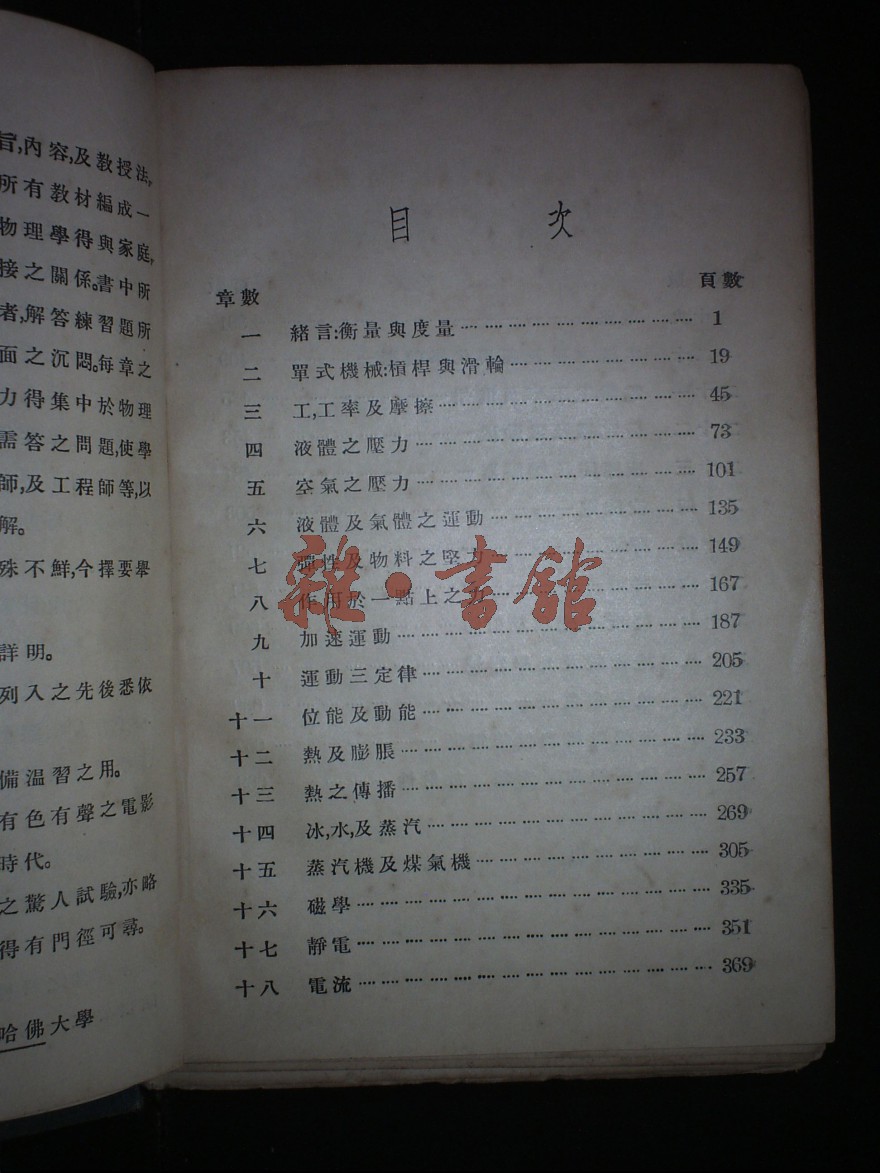 旨,內容,及教授法,
所有教材編成一
物理學得與家庭,
接之關係。書中所
者,解答練習題所
面之沉悶。每章之
力得集中於物理
需答之問題,使學
師,及工程師等,以
解。
殊不鮮,今擇要舉
詳明。
列入之先後悉依
備温習之用。
有色有聲之電影
時代。
之驚人試驗,亦略
得有門徑可尋。
哈佛大學
目 次
章數 頁數
一 緒言:衡量與度量 1
二 單式機械:槓桿與滑輪 19
三 工,工率及摩擦 45
四 液體之壓力 73
五 空氣之壓力 101
六 液體及氣體之運動 135
七 彈性及物料之堅力 149
八 作用於一點上之力 167
九 加速運動 187
十 運動三定律 205
十一 位能及動能 221
十二 熱及膨脹 233
十三 熱之傳播 257
十四 冰,水,及蒸汽 269
十五 蒸汽機及煤氣機 305
十六 磁學 335
十七 靜電 351
十八 電流 369
雜·書館